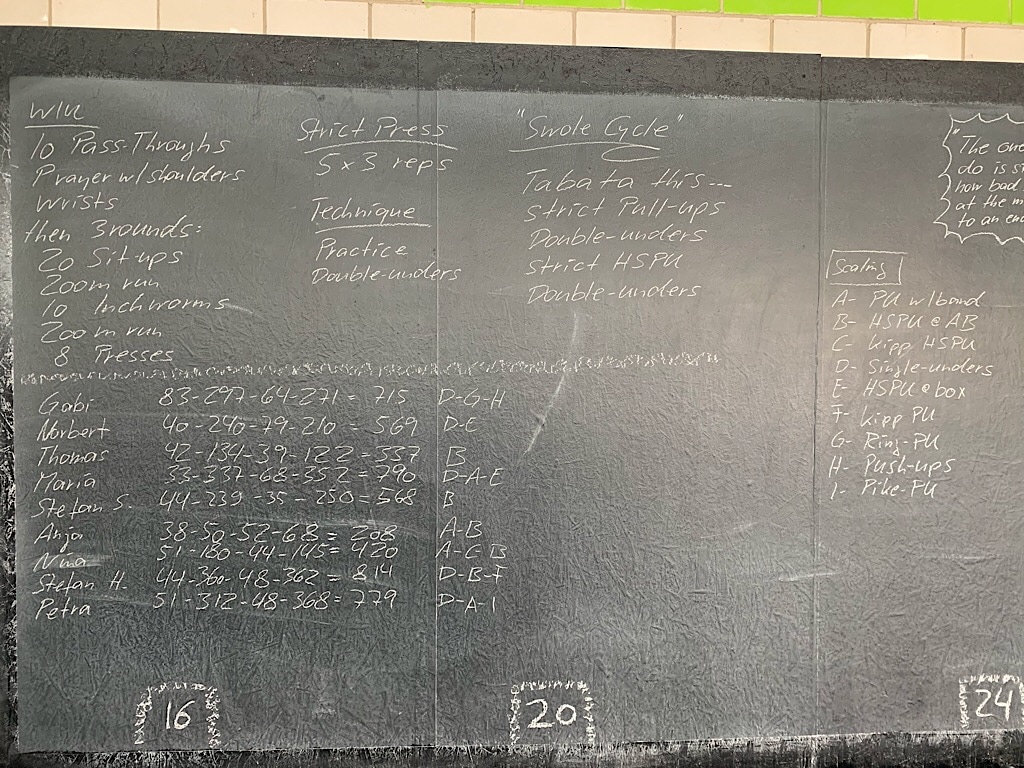 W/U
10 Pass-Throughs
Prayer w/shoulders
wrists
then 3 rounds:
20 Sit-ups
200m run
10 Inchworms
200m run
8 Presses
Strict Press
5x3 reps
Technique
Practice
Double-unders
"Swole Cycle"
Tabata this...
Strict Pull-ups
Double-unders
Strict HSPU
Double-unders
"The one
do is
how bad
at the m
to an en
Scaling
A- PU w/band
B- HSPU @ AB
C- Kipp HSPU
D- Single-unders
E- HSPU @ box
F- Kipp PU
G- Ring-PU
H- Push-ups
I- Pike-PU
Gabi 83-297-64-271 = 715 D-G-H
Norbert 40-240-79-210 = 569 D-C
Thomas 42-134-39-122 = 557 B
Maria 33-337-68-352 = 790 D-A-E
Stefan S. 44-239-35-250 = 568 B
Anja 38-50-52-68 = 208 A-B
Nina 51-180-44-145 = 420 A-C B
Stefan H. 44-360-48-362 = 814 D-B-F
Petra 51-312-48-368 = 779 D-A-I
16
20
24